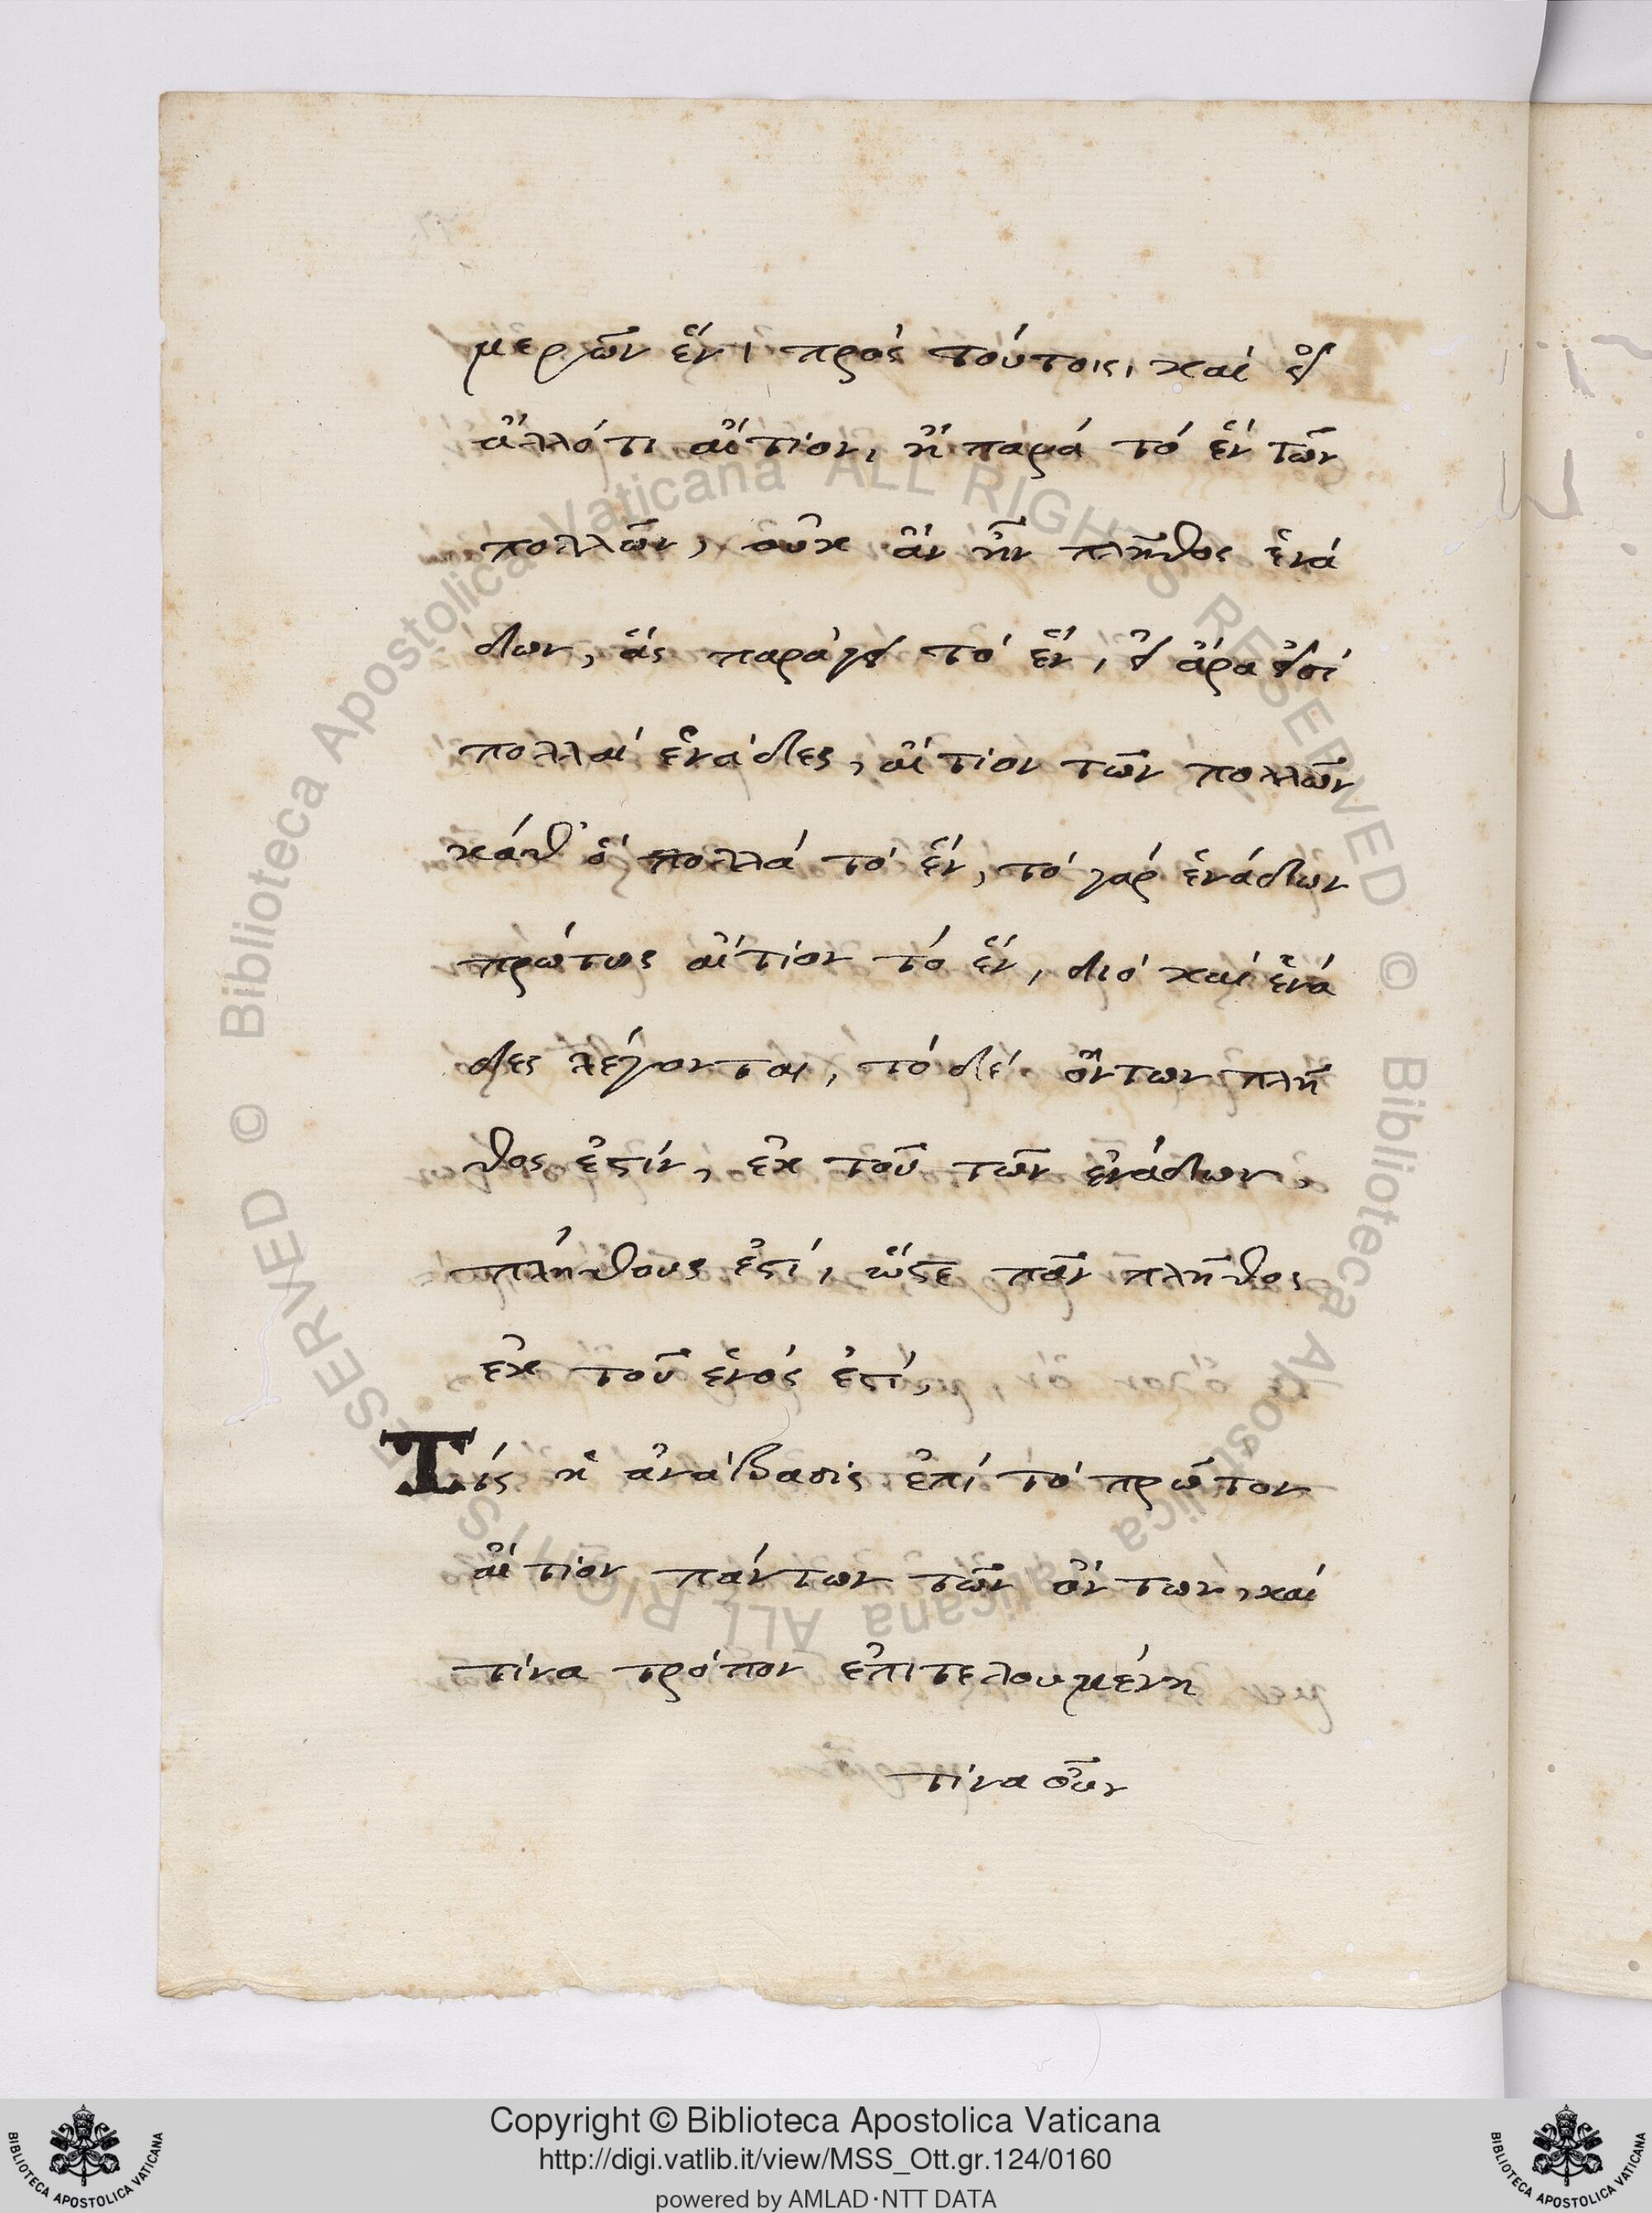 μερῶν ἕν, πρὸς τούτοις, καὶ εἰ
ἄλλό τι αἴτιον, ἢ παρὰ τὸ ἓν τῶν
πολλῶν, οὐκ ἂν ἦν πλῆθος ἑνά
δων, ἃς παράγει τὸ ἕν, εἰ ἄρα εἰσὶ
πολλαὶ ἑνάδες, αἴτιον τῶν πολλῶν
κάθ' ὃ πολλὰ τὸ ἕν, τὸ γὰρ ἑνάδων
πρώτως αἴτιον τὸ ἕν, διὸ καὶ ἑνά
δες λέγονται, τὸ δὲ ὄντων πλῆ
θος ἐστίν, ἐκ τοῦ τῶν ἑνάδων
πλήθους ἐστί, ὥστε πᾶν πλῆθος
ἐκ τοῦ ἑνός ἐστί,
Τίς ἡ ἀνάβασις ἐπὶ τὸ πρῶτον
αἴτιον πάντων τῶν ὄντων, καὶ
τίνα τρόπον ἐπιτελουμένη
τίνα οὖν
Copyright © Biblioteca Apostolica Vaticana
http://digi.vatlib.it/view/MSS_Ott.gr.124/0160
powered by AMLAD·NTT DATA
BIBLIOTECA APOSTOLICA VATICANA
BIBLIOTECA APOSTOLICA VATICANA
© Biblioteca Apostolica Vaticana ALL RIGHTS RESERVED
© Biblioteca Apostolica Vaticana ALL RIGHTS RESERVED